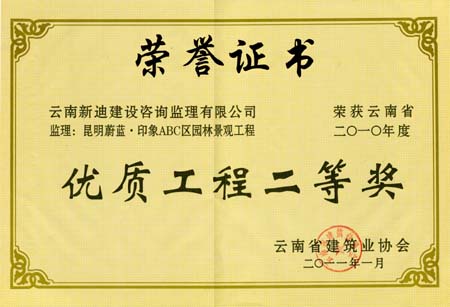 荣誉证书
云南新迪建设咨询监理有限公司 荣获云南省
监理：昆明蔚蓝·印象ABC区园林景观工程 二〇一〇年度
优质工程二等奖
云南省建筑业协会
二〇一一年一月